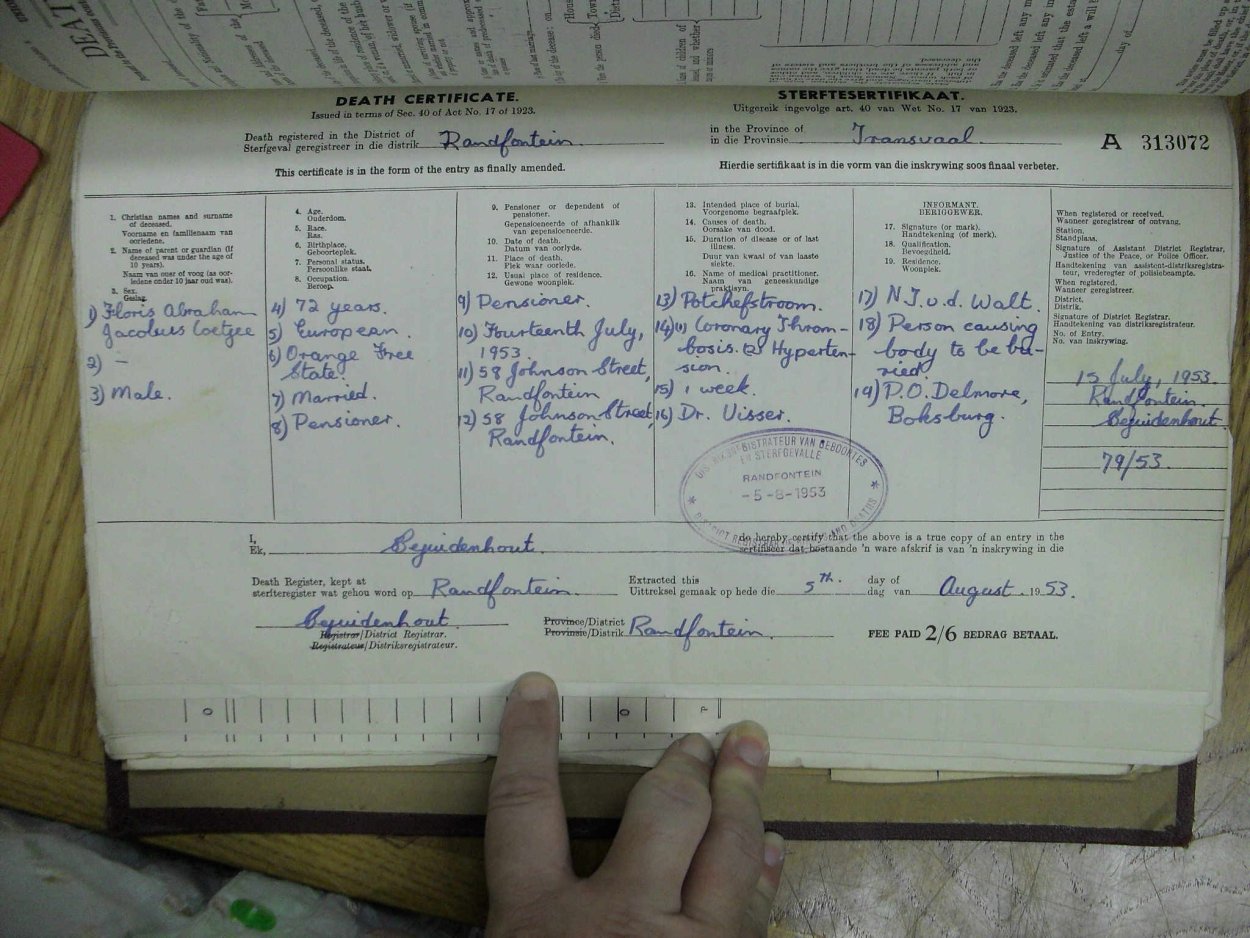 DEATH CERTIFICATE.
Issued in terms of Sec. 40 of Act No. 17 of 1923.
STERFTESERTIFIKAAT.
Uitgereik ingevolge art. 40 van Wet No. 17 van 1923.
Death registered in the District of
Sterfgeval geregistreer in die distrik Randfontein.
in the Province of
in die Provinsie Transvaal.
A 313072
This certificate is in the form of the entry as finally amended.
Hierdie sertifikaat is in die vorm van die inskrywing soos finaal verbeter.
1. Christian names and surname
of deceased.
Voorname en familienaam van
oorledene.
2. Name of parent or guardian (if
deceased was under the age of
10 years).
Naam van ouer of voog (as oor-
ledene onder 10 jaar oud was).
3. Sex.
Geslag.
1) Floris Abraham
Jacobus Coetzee
2) -
3) Male.
4. Age.
Ouderdom.
5. Race.
Ras.
6. Birthplace.
Geboorteplek.
7. Personal status.
Persoonlike staat.
8. Occupation.
Beroep.
4) 72 years.
5) European.
6) Orange Free
State.
7) Married.
8) Pensioner.
9. Pensioner or dependent of
pensioner.
Gepensioeneerde of afhanklik
van gepensioeneerde.
10. Date of death.
Datum van oorlyde.
11. Place of death.
Plek waar oorlede.
12. Usual place of residence.
Gewone woonplek.
9) Pensioner.
10) Fourteenth July,
1953.
11) 58 Johnson Street,
Randfontein
12) 58 Johnson Street,
Randfontein.
13. Intended place of burial.
Voorgenome begraafplek.
14. Causes of death.
Oorsake van dood.
15. Duration of disease or of last
illness.
Duur van kwaal of van laaste
siekte.
16. Name of medical practitioner.
Naam van geneeskundige
praktisyn.
13) Potchefstroom.
14) (1) Coronary Throm-
bosis. (2) Hyperten-
sion.
15) 1 week.
16) Dr. Visser.
INFORMANT.
BERIGGEWER.
17. Signature (or mark).
Handtekening (of merk).
18. Qualification.
Bevoegdheid.
19. Residence.
Woonplek.
17) N.J. v.d. Walt.
18) Person causing
body to be bu-
ried
19) P.O. Delmore,
Boksburg.
When registered or received.
Wanneer geregistreer of ontvang.
Station.
Standplaas.
Signature of Assistant District Registrar,
Justice of the Peace, or Police Officer.
Handtekening van assistent-distriksregistra-
teur, vrederegter of polisiebeampte.
When registered.
Wanneer geregistreer.
District.
Distrik.
Signature of District Registrar.
Handtekening van distriksregistrateur.
No. of Entry.
No. van inskrywing.
15 July, 1953.
Randfontein.
Bezuidenhout.
79/53.
DISTRIKSREGISTRATEUR VAN GEBOORTES
EN STERFGEVALLE
RANDFONTEIN
-5-8-1953
DISTRICT REGISTRAR OF BIRTHS AND DEATHS
I,
Ek, Bezuidenhout. do hereby certify that the above is a true copy of an entry in the
sertifiseer dat bostaande 'n ware afskrif is van 'n inskrywing in die
Death Register, kept at
sterfteregister wat gehou word op Randfontein.
Extracted this
Uittreksel gemaak op hede die 5th. day of
dag van August. 1953.
Bezuidenhout.
Registrar/District Registrar.
Registrateur/Distriksregistrateur.
Province/District
Provinsie/Distrik Randfontein.
FEE PAID 2/6 BEDRAG BETAAL.